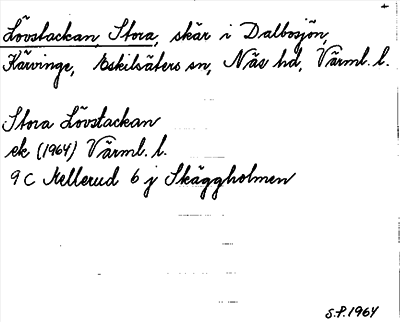 Lövstackan, Stora, skär i Dalbosjön,
Kärvinge, Eskilsäters sn, Näs hd, Värml. l.
Stora Lövstackan
ek (1964) Värml. l.
9 C Mellerud 6 j Skäggholmen
S.P. 1964